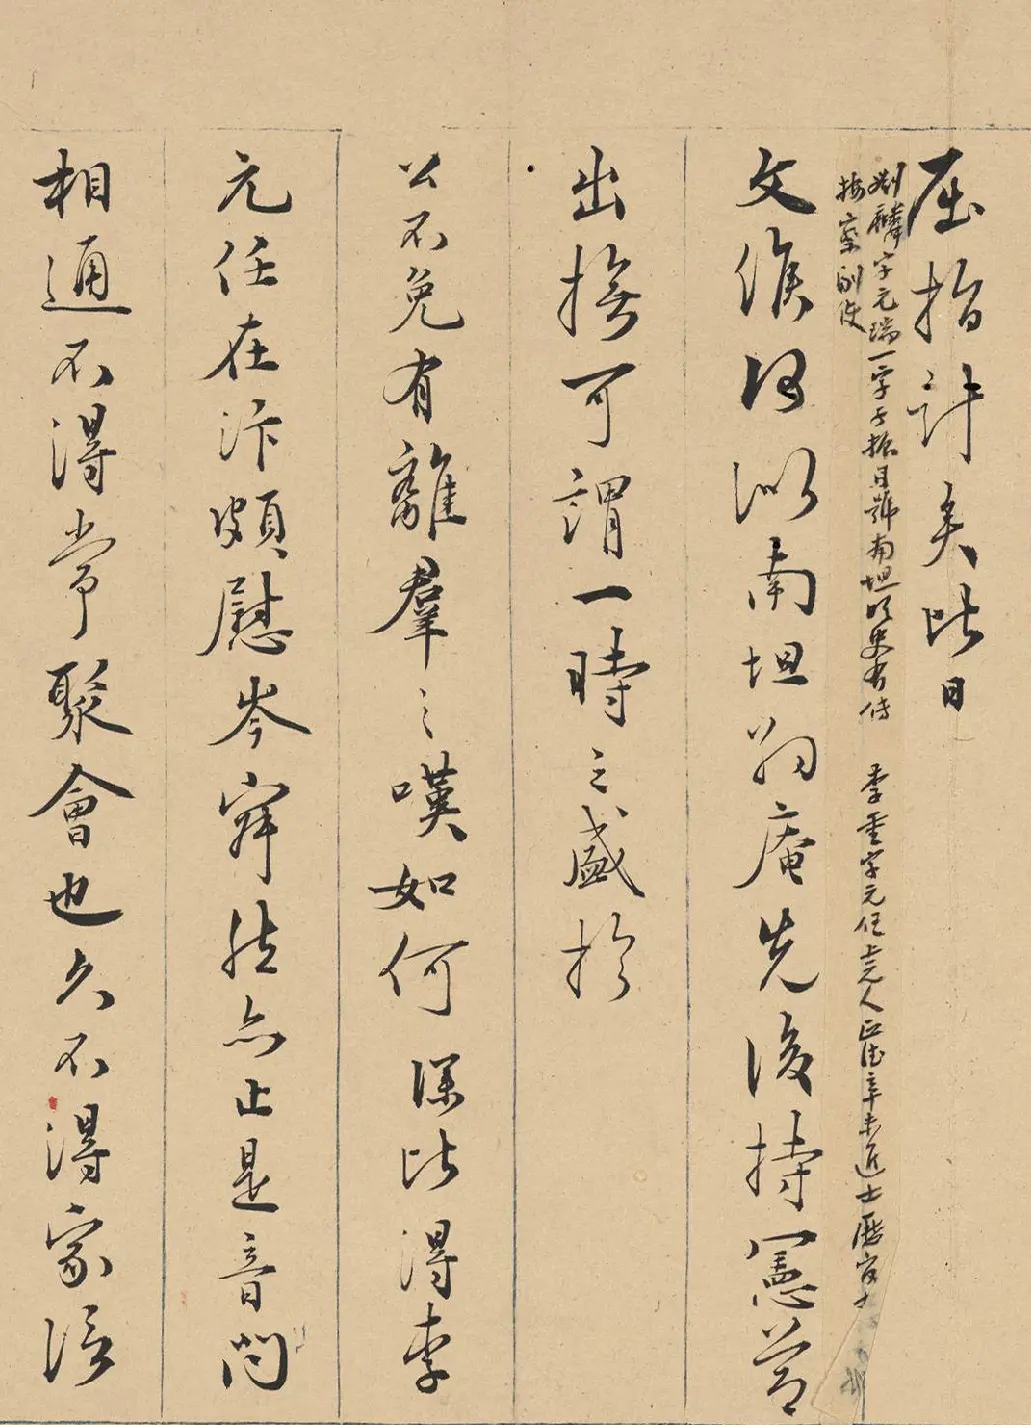 屈指計矣比日
刘麟字元瑞一字子振自號南坦明史有傳 李重字元任上元人正德辛未進士歷官
按察副使
文 以南坦 庵先後持憲節
出撫可謂一時之盛於
公不免有離羣之嘆如何 深比得李
元任在汴頗慰岑寂然亦止是音問
相通不得常聚會也久不得家信